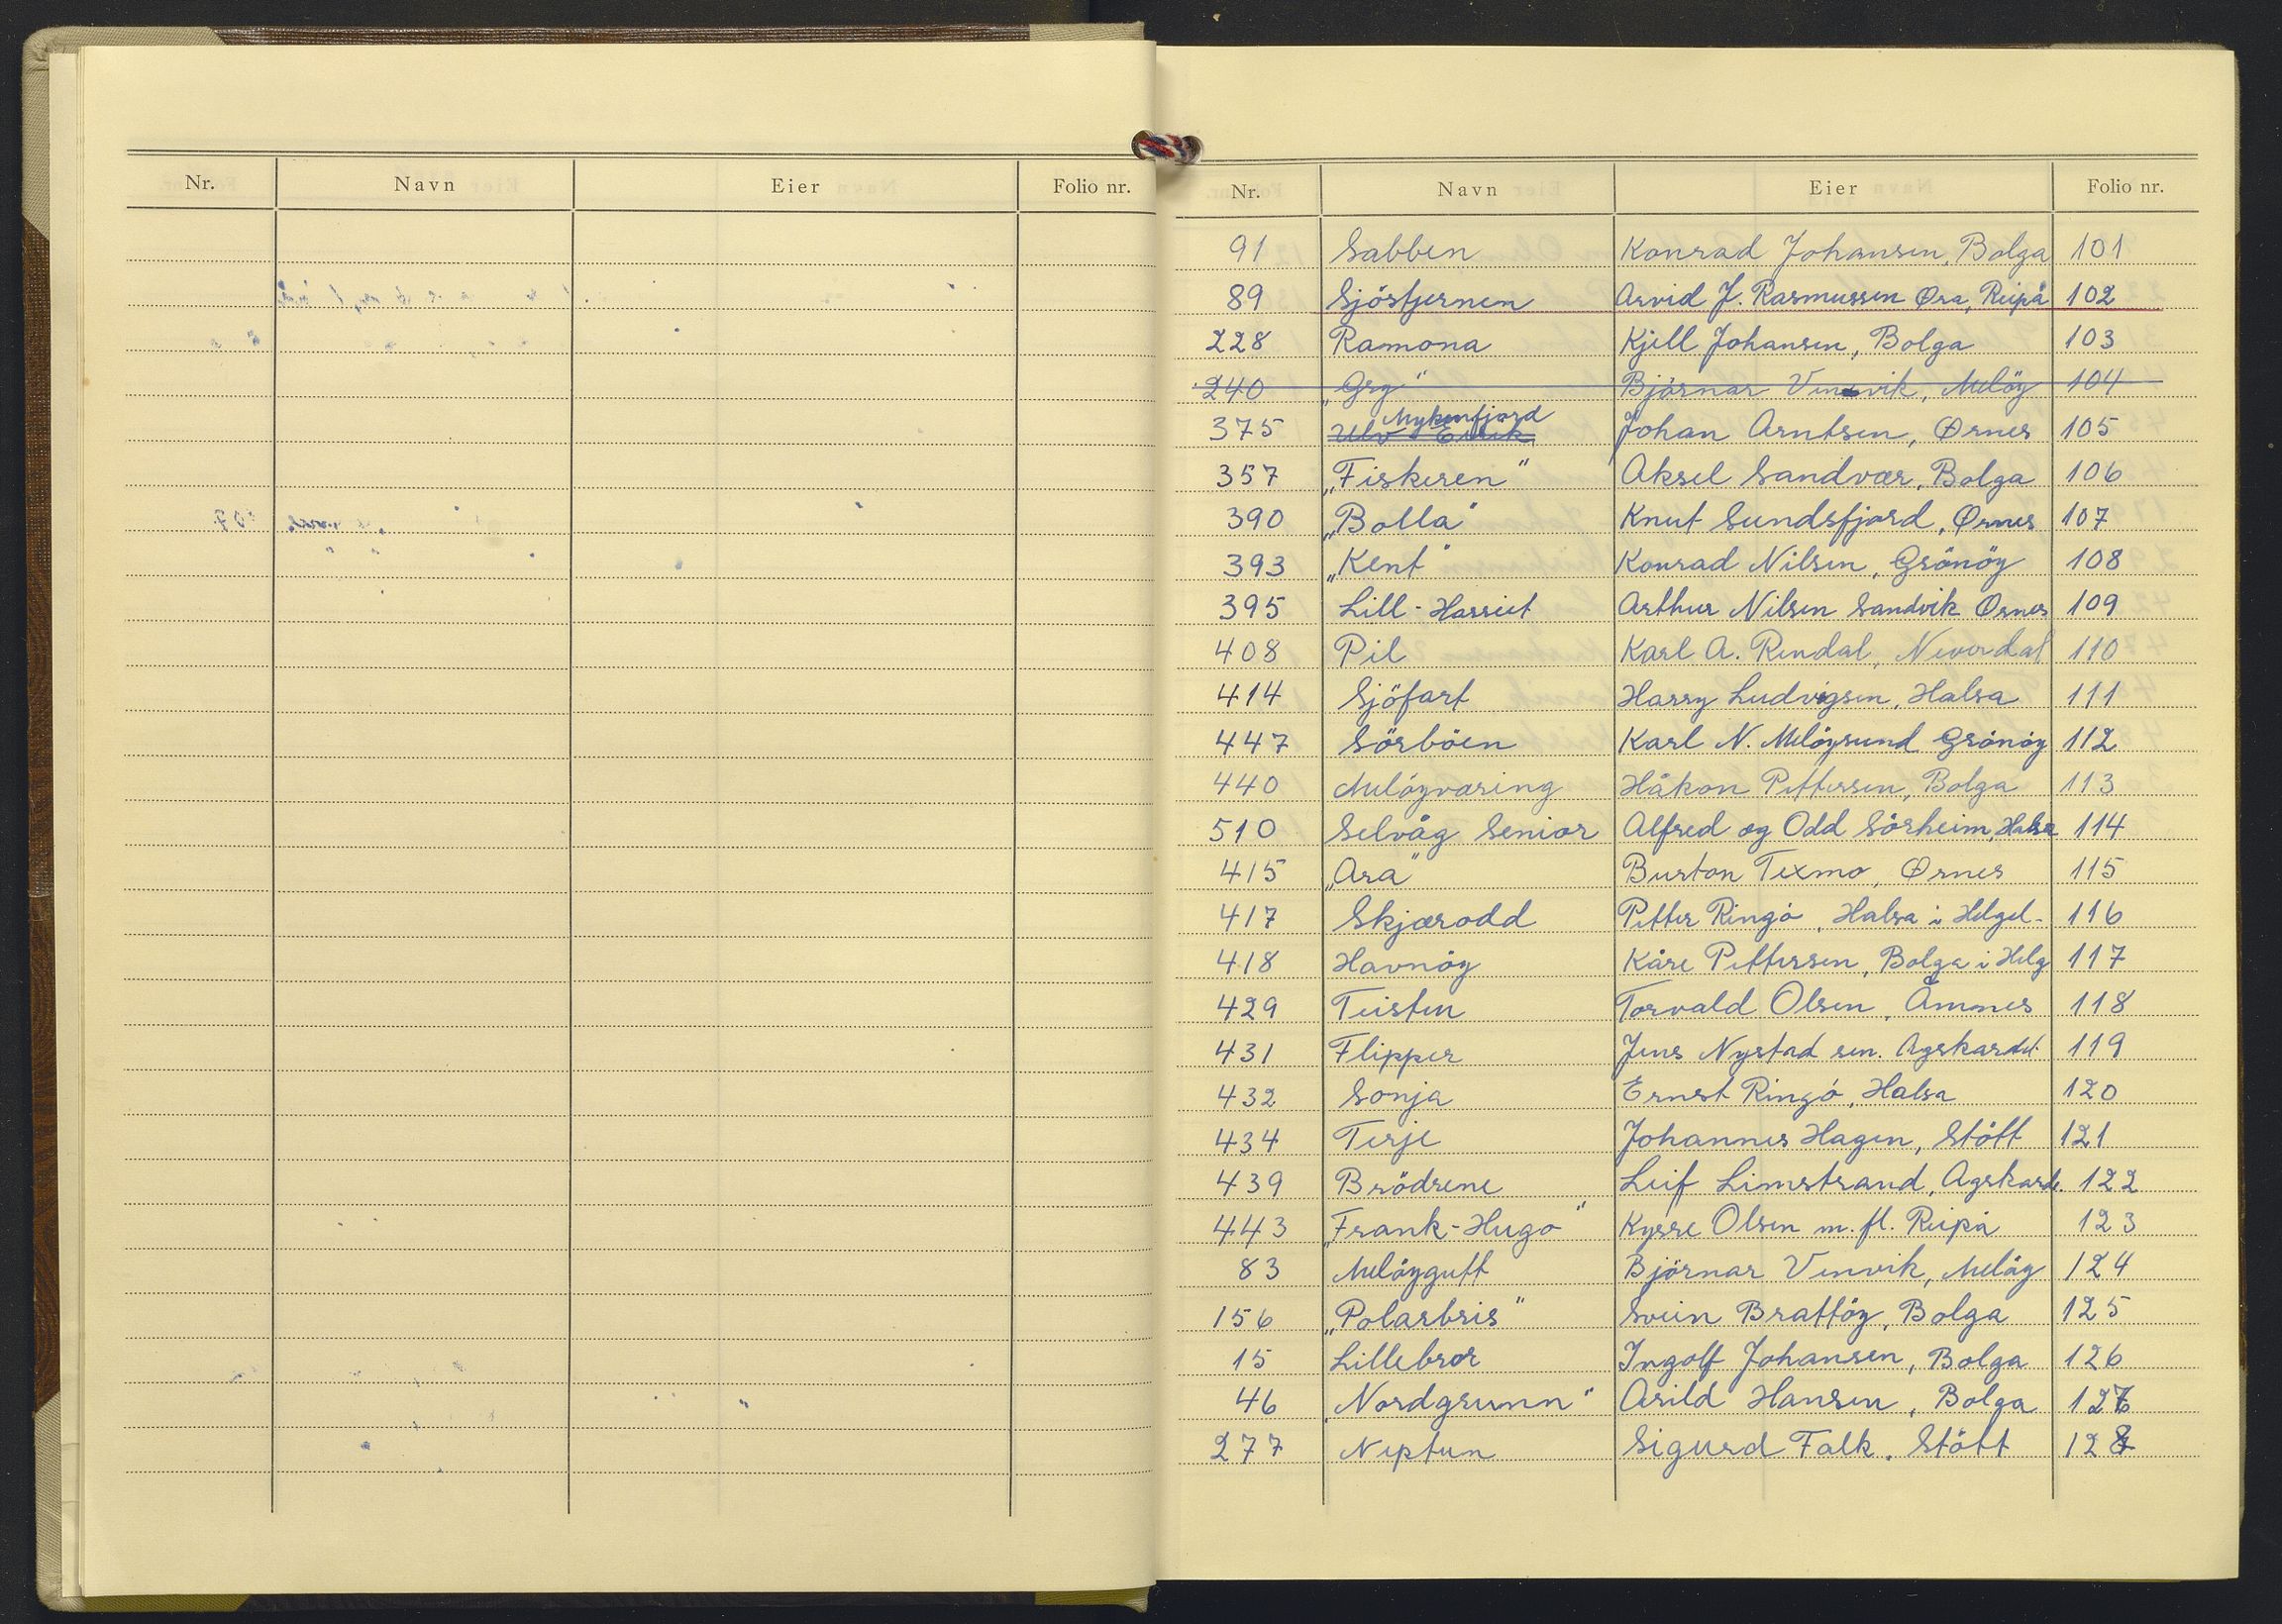 Nr. Navn Eier Folio nr.
Nr. Navn Eier Folio nr.
91 Sabben Konrad Johansen, Bolga 101
89 Sjöstjernen Arvid J. Rasmussen Øra, Reipå 102
228 Ramona Kjell Johansen, Bolga 103
240 „Gry" Björnar Vinsvik, Melöy 104
Mykenfjord
375 Ulv Eirik Johan Arntsen, Ørnes 105
357 „Fiskeren" Aksel Sandvær, Bolga 106
390 „Bolla" Knut Sundsfjord, Ørnes 107
393 „Kent" Konrad Nilsen, Grönöy 108
395 Lill-Harriet Arthur Nilsen Sandvik Ørnes 109
408 Pil Karl A. Rendal, Neverdal 110
414 Sjöfart Harry Ludvigsen, Halsa 111
447 Sörböen Karl N. Melöysund Grönöy 112
440 Melöyværing Håkon Pettersen, Bolga 113
510 Selvåg Senior Alfred og Odd Sörheim, Halsa 114
415 „Ara" Burton Texmo, Ørnes 115
417 Skjærodd Petter Ringö, Halsa i Helgel- 116
418 Havnöy Kåre Pettersen, Bolga i Helg 117
429 Teisten Torvald Olsen, Åmnes 118
431 Flipper Jens Nystad sen. Ågskardet 119
432 Sonja Ernst Ringö, Halsa 120
434 Terje Johannes Hagen, Stött 121
439 Brödrene Leif Limstrand, Ågskarde. 122
443 „Frank-Hugo" Kyrre Olsen m. fl. Reipå 123
83 Melöygutt Björnar Venvik, Melöy 124
156 „Polarbris" Svein Brattöy, Bolga 125
15 Lillebror Ingolf Johansen, Bolga 126
46 „Nordgrunn" Arild Hansen, Bolga 127
277 Neptun Sigurd Falk, Stött 128